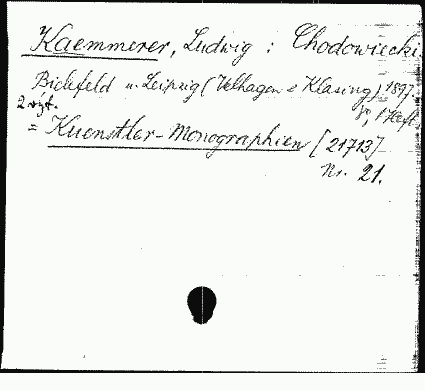 Kaemmerer, Ludwig : Chodowiecki.
Bielefeld u. Leipzig (Velhagen & Klasing) 1897.
8°, 1 Heft
2 ryt.
= Kuenstler-Monographien [21713]
Nr. 21.